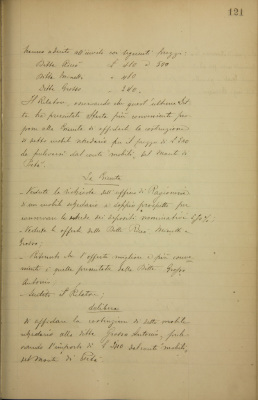 121
hanno aderito all'invito coi seguenti prezzi:
Ditta Ricci £ 410 e 500
Ditta £ 410
Ditta Grosso " 340.
Il Relatore, osservando che quest'ultima Dit
ta ha presentato offerta più conveniente, pro
pone alla Giunta di affidarle la costruzione
di detto mobile schedario per il prezzo di £ 340
da prelevarsi dal conto mobili, del Monte di
Pietà.
La Giunta
- Veduta la richiesta dell'ufficio di Ragioneria
di un mobile schedario a doppio prospetto per
le schede dei depositi nominativi
- Vedute le offerte delle Ditte Ricci, e
Grosso;
- Ritenuto che l'offerta migliore e più conve
niente è quella presentata dalla Ditta Grosso
Antonio;
- Sentito il Relatore;
delibera
di affidare la costruzione di detto mobile
schedario alla ditta Grosso Antonio, prele
vando l'importo di £ 340 dal conto mobili,
del Monte di Pietà.